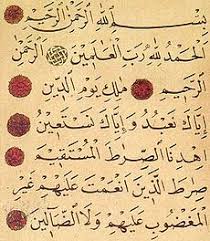 بِسْمِ اللهِ الرَّحْمٰنِ الرَّحِيْمِ
الْحَمْدُ لِلّٰهِ رَبِّ الْعَالَمِينَ الرَّحْمٰنِ
الرَّحِيمِ مٰلِكِ يَوْمِ الدِّينِ
اِيَّاكَ نَعْبُدُ وَاِيَّاكَ نَسْتَعِينُ
اِهْدِنَا الصِّرَاطَ الْمُسْتَقِيمَ
صِرَاطَ الَّذِينَ اَنْعَمْتَ عَلَيْهِمْ غَيْرِ
الْمَغْضُوبِ عَلَيْهِمْ وَلَا الضَّالِّينَ